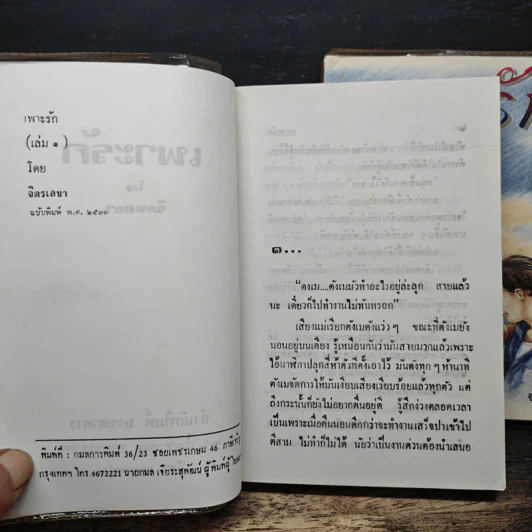 เพาะรัก
(เล่ม ๑)
โดย
จิตรเลขา
ฉบับพิมพ์ พ.ศ. ๒๕๓๖
พิมพ์ที่ : กมลการพิมพ์ 36/23 ซอยเพชรเกษม 46
กรุงเทพฯ โทร.4672221 นายกมล เจียระสุพัฒน์ ผู้พิมพ์ผู้
๑...
"ตังเม....ตังเมมัวทำอะไรอยู่ล่ะลูก สายแล้ว
นะ เดี๋ยวก็ไปทำงานไม่ทันหรอก"
เสียงแม่เรียกตังเมดังแว่ว ๆ ขณะที่ตังเมยัง
นอนอยู่บนเตียง รู้เหมือนกันว่ามันสายมากแล้วเพราะ
ไอ้นาฬิกาปลุกสี่ห้าตัวที่ตั้งเอาไว้ มันดังทุก ๆ ห้านาที
ตังเมจัดการให้มันเงียบเสียงเรียบร้อยแล้วทุกตัว แต่
ถึงกระนั้นก็ยังไม่อยากตื่นอยู่ดี รู้สึกง่วงตลอดเวลา
เป็นเพราะเมื่อคืนนอนดึกกว่าจะทำงานเสร็จปาเข้าไป
ตีสาม ไม่ทำก็ไม่ได้ นับว่าเป็นงานด่วนต้องนำเสนอ